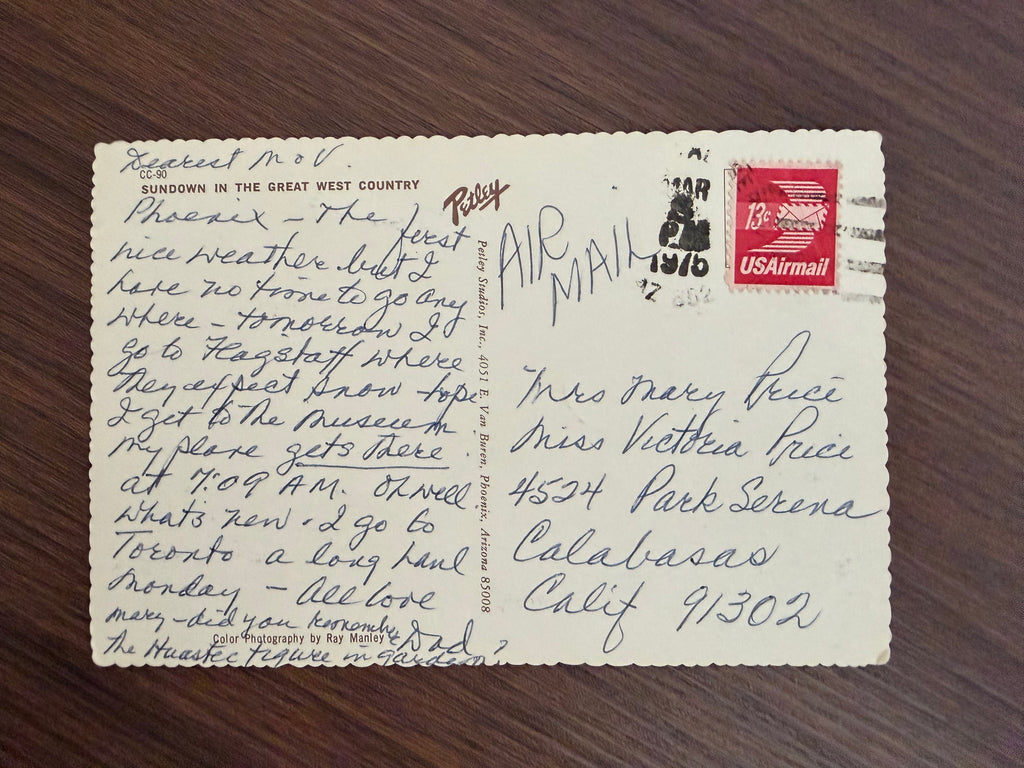 Dearest M & V.
CC-90
SUNDOWN IN THE GREAT WEST COUNTRY
Phoenix - The first
nice weather but I
have no time to go any
where - tomorrow I
go to Flagstaff where
they expect snow - hope
I get to the museum
my plane gets there
at 7:09 A.M. Oh well
whats new - I go to
Toronto a long haul
Monday - All love
Dad
Mary - did you remember
The Huastec figure in garden?
Color Photography by Ray Manley
Petley
Petley Studios, Inc., 4051 E. Van Buren, Phoenix, Arizona 85008
AIR
MAIL
MAR
PM
1975
AZ 852
13c
USAirmail
Mrs Mary Price
Miss Victoria Price
4524 Park Serena
Calabasas
Calif 91302